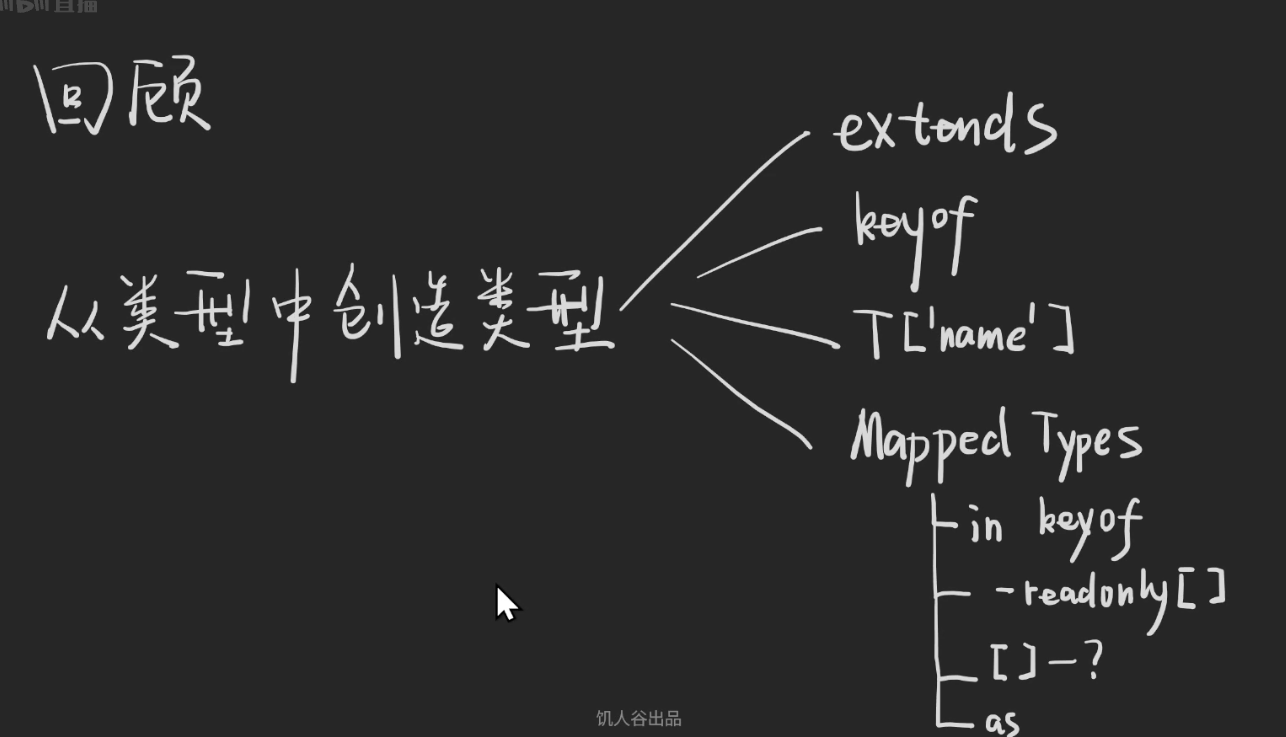 直播
回顾
从类型中创造类型
extends
keyof
T['name']
Mapped Types
in keyof
-readonly[]
[]-?
as
饥人谷出品